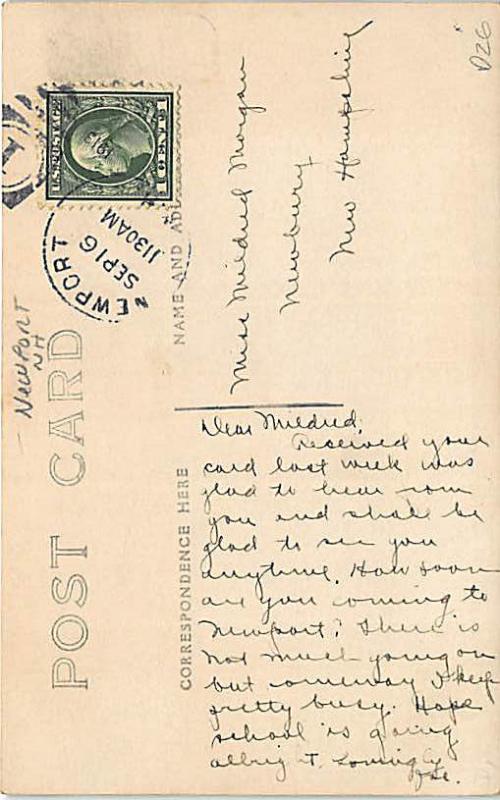 D26
NEWPORT
SEP 16
1130 AM
1912
U.S. POSTAGE
NEWPORT
NH
POST CARD
NAME AND AD
CORRESPONDENCE HERE
Miss Mildred Morgan
Newbury
New Hampshire
Dear Mildred,
Received your
card last week was
glad to hear rom
you and shall be
glad to see you
anytime. How soon
are you coming to
Newport? There is
not much going on
but someway I keep
pretty busy. Hope
school is going
allright. Lovingly